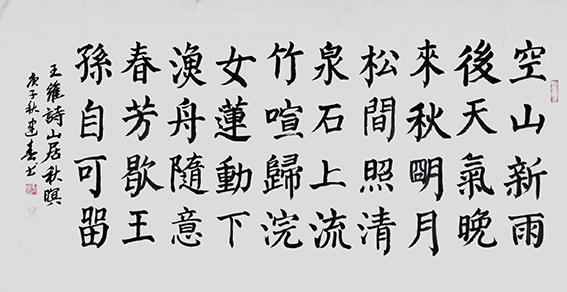 空山新雨
後天氣晚
來秋朙月
松間照清
泉石上流
竹喧歸浣
女蓮動下
漁舟隨意
春芳歇王
孫自可㽞
王維詩山居秋暝
庚子秋建书